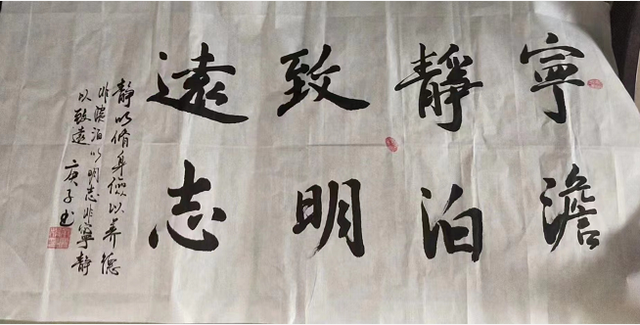 寧靜致遠
澹泊明志
靜以脩身儉以养德
非淡泊以明志非寧靜
以致遠 庚子书